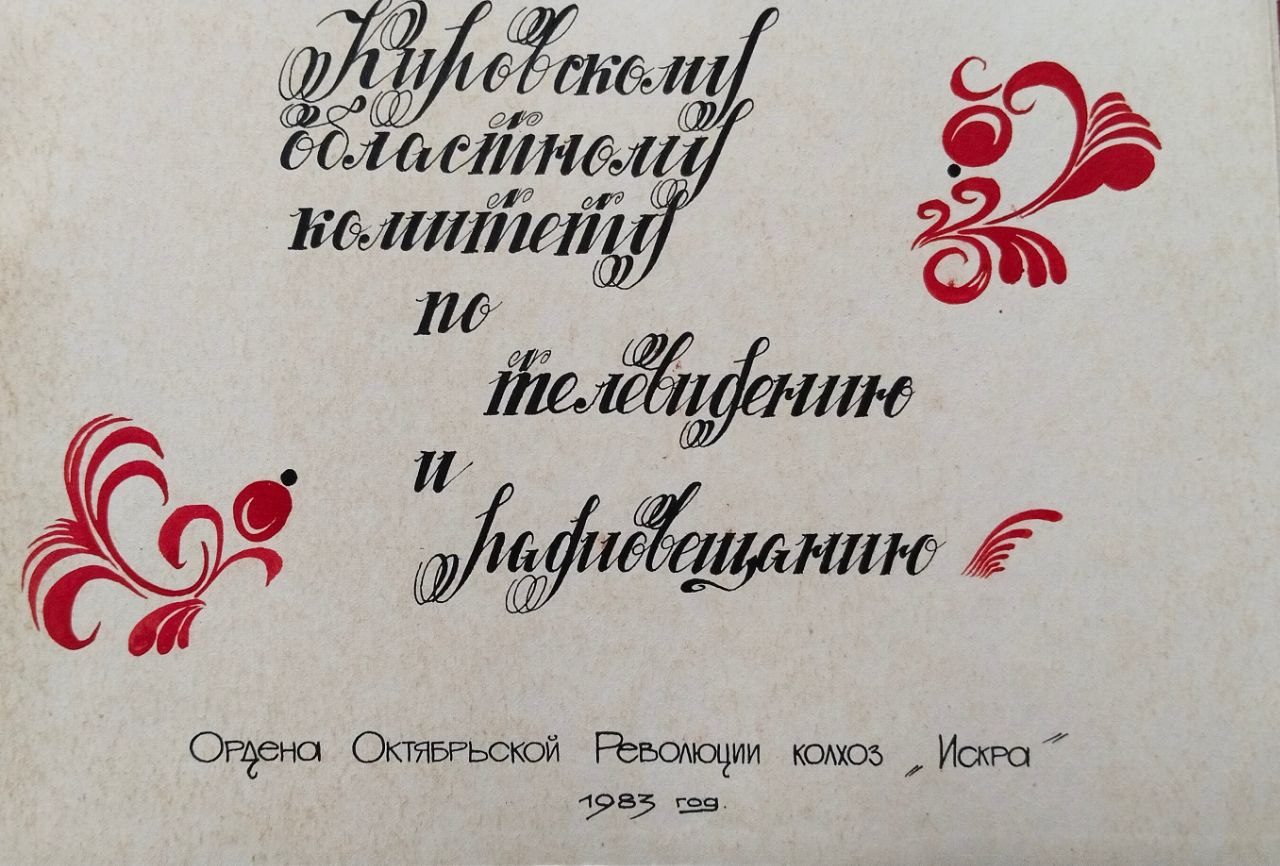 Кировскому
областному
комитету
по
телевидению
и
радиовещанию
Ордена Октябрьской Революции колхоз „Искра"
1983 год.